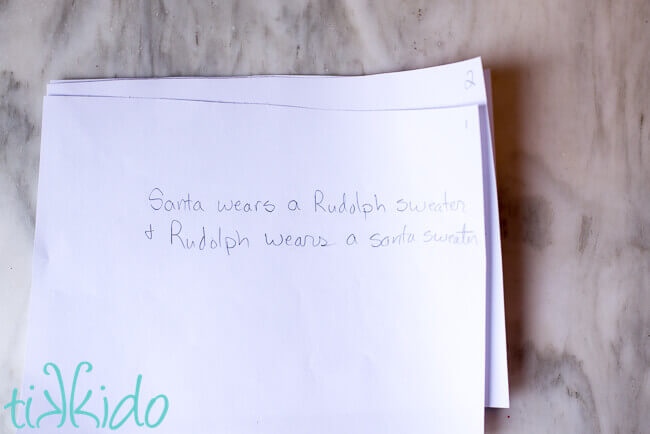 2
1
Santa wears a Rudolph sweater
+ Rudolph wears a santa sweater
tikkido